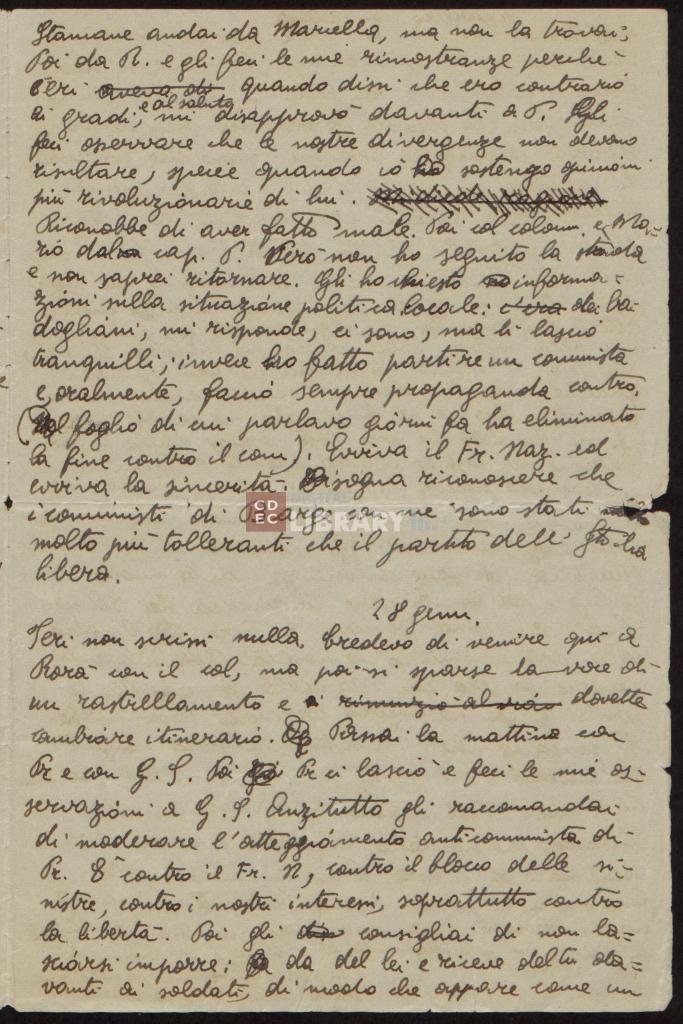 Stamane andai da Mariella, ma non la trovai;
Poi da R. e gli feci le mie rimostranze perchè
ieri aveva di quando dissi che ero contrario
ai gradi, e al saluto mi disapprovò davanti a P. Gli
feci osservare che le nostre divergenze non devono
risultare, specie quando io ho sostengo opinioni
più rivoluzionarie di lui.
Riconobbe di aver fatto male. Poi col colonn. e Ma-
rio dal cap. P. Però non ho seguito la strada
e non saprei ritornare. Gli ho chiesto informa-
zioni sulla situazione politica locale: c'era dei ba-
dogliani, mi risponde, ci sono, ma li lascio
tranquilli; invece ho fatto partire un comunista
e, oralmente, faccio sempre propaganda contro.
(Nel foglio di cui parlavo giorni fa ha eliminato
la fine contro il com). Evviva il Fr. Naz. ed
evviva la sincerità. Bisogna riconoscere che
i comunisti di con me sono stati
molto più tolleranti che il partito dell' Italia
libera.
28 genn.
Ieri non scrissi nulla. Credevo di venire qui a
Rorà con il col, ma poi si sparse la voce di
un rastrellamento e rinunziò al via dovette
cambiare itinerario. Passai la mattina con
Pr e con G. S. Poi Pr ci lasciò e feci le mie os-
servazioni a G. S. Anzitutto gli raccomandai
di moderare l'atteggiamento anticomunista di
Pr. È contro il Fr. N, contro il blocco delle si-
nistre, contro i nostri interessi, soprattutto contro
la libertà. Poi gli consigliai di non la=
sciarsi imporre; da del lei e riceve del tu da-
vanti ai soldati, di modo che appare come un
CDEC
LIBRARY